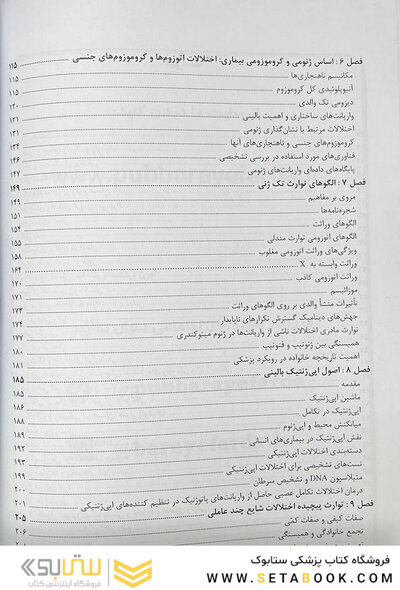 فصل ۶ : اساس ژنومی و کروموزومی بیماری: اختلالات اتوزوم‌ها و کروموزوم‌های جنسی ۱۱۵
مکانیسم ناهنجاری‌ها ۱۱۵
آنیوپلوئیدی کل کروموزوم
دیزومی تک والدی ۱۲۰
واریانت‌های ساختاری و اهمیت بالینی ۱۲۱
اختلالات مرتبط با نشان‌گذاری ژنومی ۱۳۱
کروموزوم‌های جنسی و ناهنجاری‌های آنها ۱۳۴
فناوری‌های مورد استفاده در بررسی تشخیصی
پایگاه‌های داده‌ای واریانت‌های ژنومی ۱۴۷
فصل ۷ : الگوهای توارث تک ژنی ۱۴۹
مروری بر مفاهیم ۱۴۹
شجره‌نامه‌ها ۱۵۱
الگوهای وراثت
الگوهای اتوزومی توارث مندلی
ویژگی‌های وراثت اتوزومی مغلوب
وراثت وابسته به X ۱۶۴
وراثت اتوزومی کاذب ۱۷۰
موزائیسم ۱۷۱
تأثیرات منشأ والدی بر روی الگوهای وراثت ۱۷۳
جهش‌های دینامیک گسترش تکرارهای ناپایدار
توارث مادری اختلالات ناشی از واریانت‌ها در ژنوم میتوکندری ۱۷۷
همبستگی بین ژنوتیپ و فنوتیپ ۱۸۰
اهمیت تاریخچه خانواده در رویکرد پزشکی ۱۸۱
فصل ۸ : اصول اپی‌ژنتیک بالینی ۱۸۵
مقدمه ۱۸۵
ماشین اپی‌ژنتیک ۱۸۶
اپی‌ژنتیک در تکامل ۱۸۸
میانکنش محیط و اپی‌ژنوم ۱۸۸
نقش اپی‌ژنتیک در بیماری‌های انسانی ۱۹۳
دسته‌بندی اختلالات اپی‌ژنتیکی
تست‌های تشخیصی برای اختلالات اپی‌ژنتیکی ۱۹۹
متیلاسیون DNA و تشخیص سرطان ۲۰۰
درمان اختلالات تکامل عصبی حاصل از واریانت‌های پاتوژنیک در تنظیم کننده‌های اپی‌ژنتیکی ۲۰۱
فصل ۹ : توارث پیچیده اختلالات شایع چند عاملی ۲۰۵
صفات کیفی و صفات کمی ۲۰۶
تجمع خانوادگی و همبستگی
فروشگاه کتاب پزشکی ستابوک
WWW.SETABOOK.COM
ستابوک
فروشگاه اینترنتی کتاب